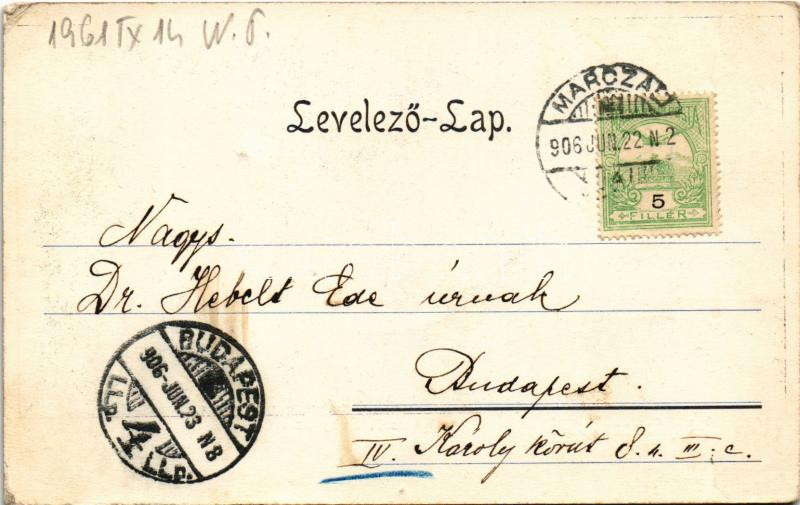 1961 IX 14 W. T.
Levelező-Lap.
MARCZALI
906 JUN. 22 N 2
5
FILLÉR
Nagys.
Dr. Hebelt Ede úrnak
Budapest.
IV. Károly körút 8. sz. III. c.
BUDAPEST
906 JUN. 23 N 8
4